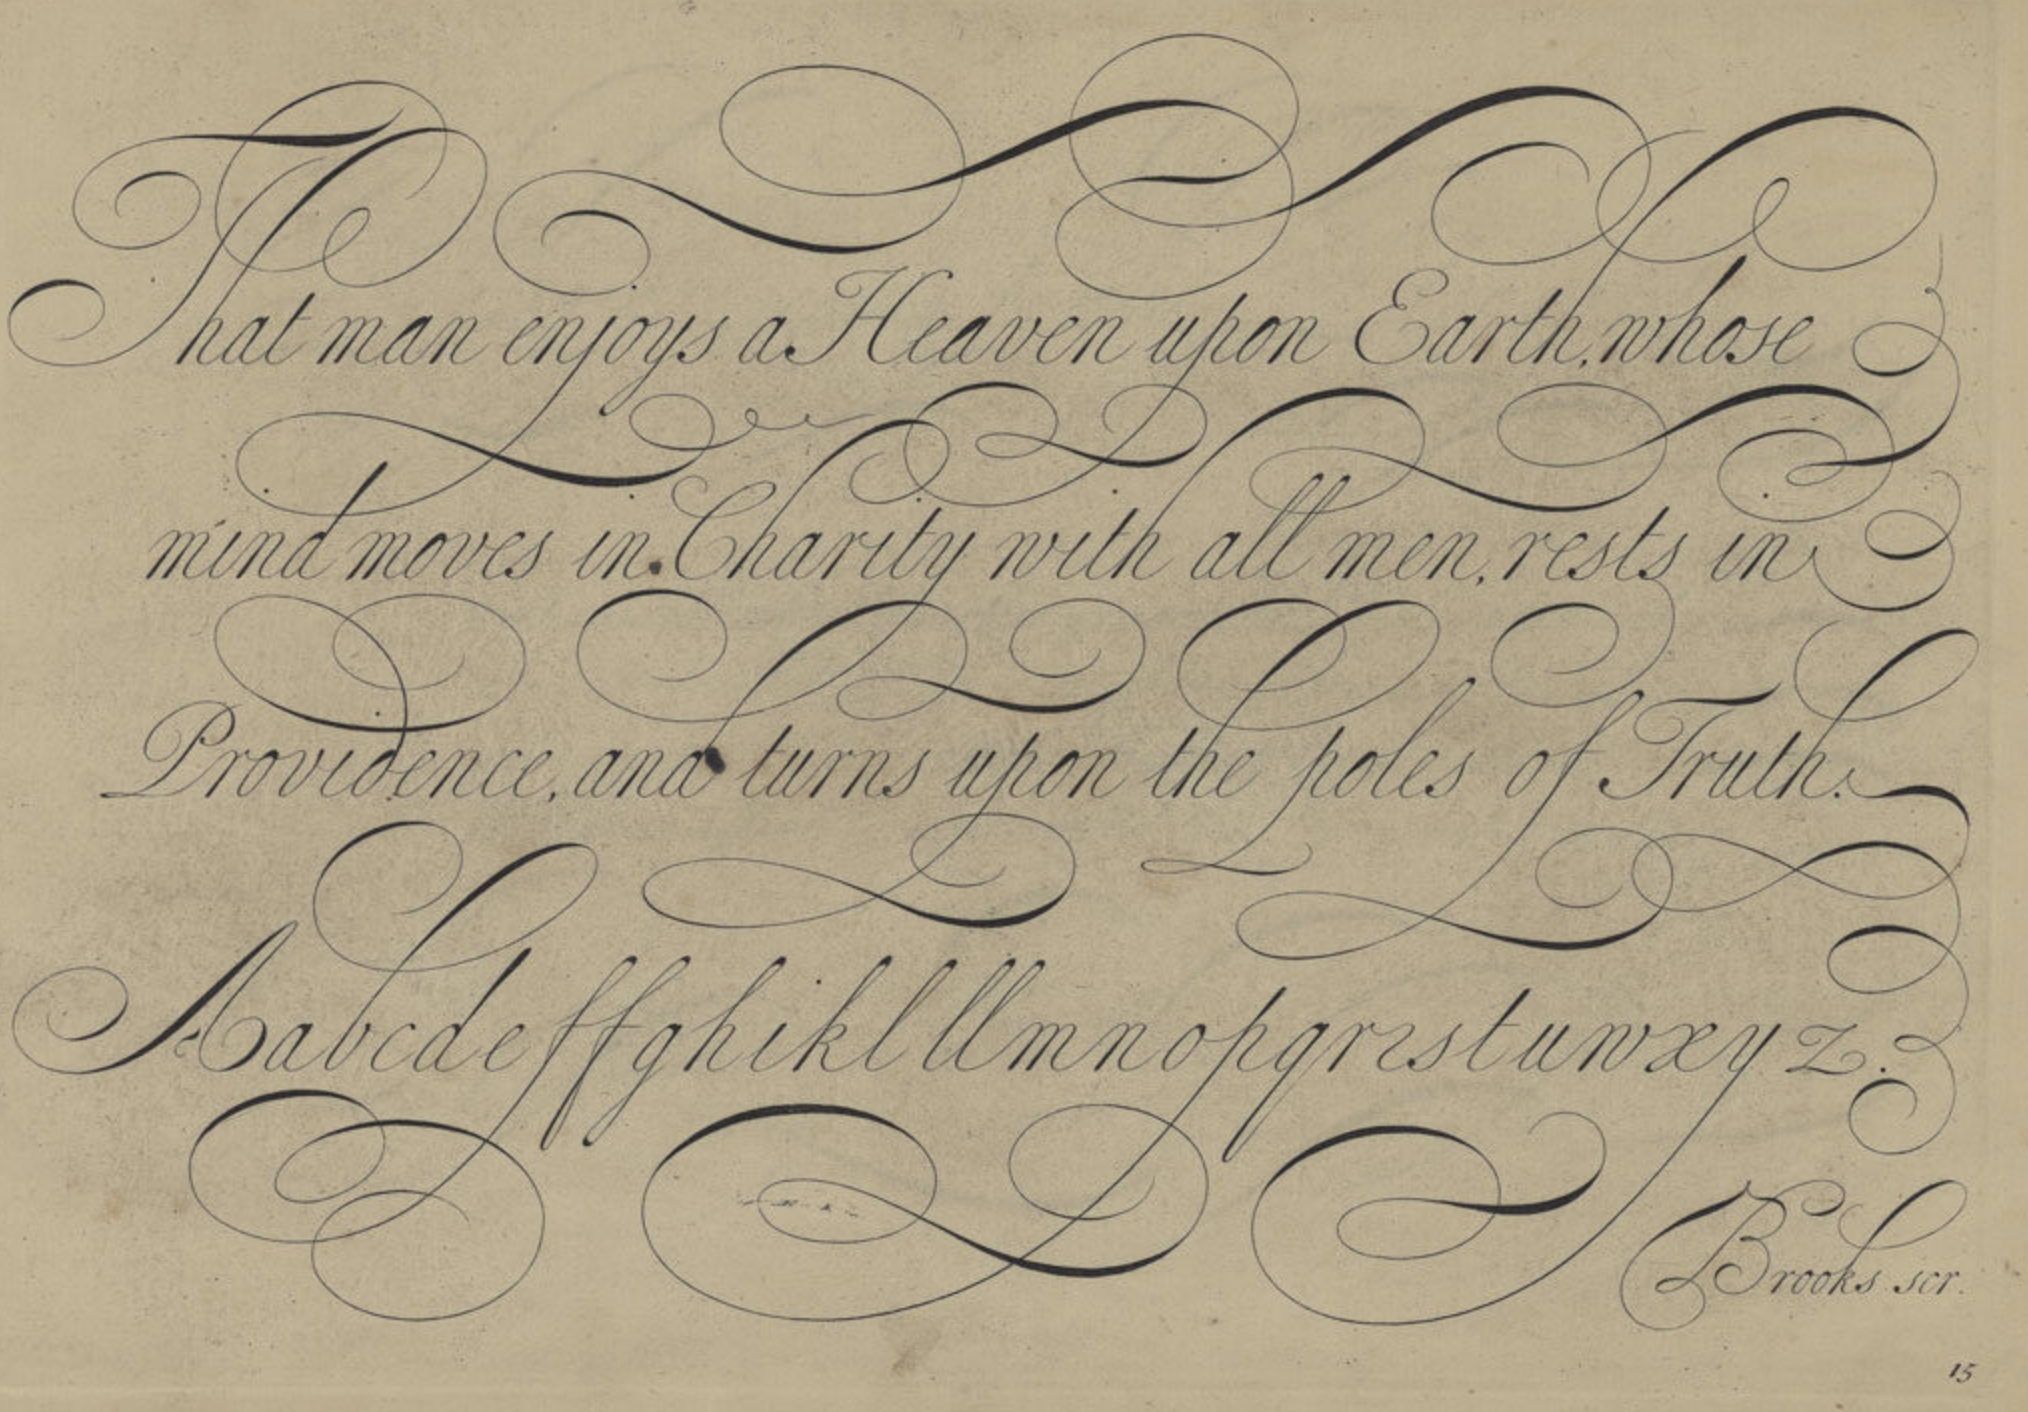 That man enjoys a Heaven upon Earth, whose
mind moves in Charity with all men, rests in
Providence, and turns upon the poles of Truth.
A a b c d e f f g h i k l ll m n o p q r r s t u w x y z.
Brooks scr.
15